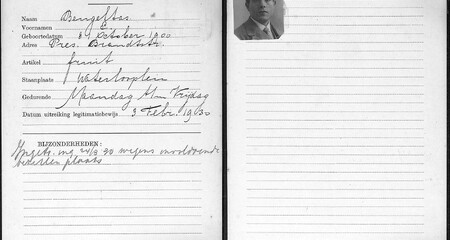 Naam Bengeltas
Voornamen E.
Geboortedatum 31 October 1900
Adres Pres. Brandtstr.
Artikel fruit
Staanplaats Waterlooplein
Gedurende Maandag t/m Vrijdag
Datum uitreiking legitimatiebewijs 3 Febr. 1930
BIJZONDERHEDEN:
Ingetr. ing. wegens onvoldoende
bezetten plaats